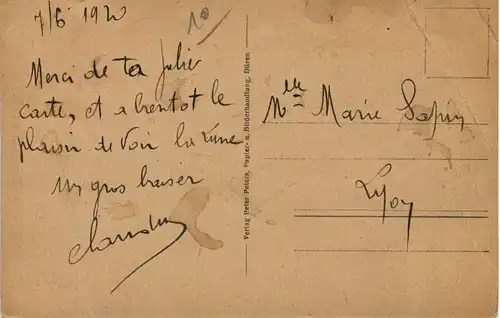 7/6 1920
10
Merci de ta jolie
carte, et a bientot le
plaisir de voir la
un gros baiser
Mlle Marie
Lyon
Verlag Peter Peters, Papier- u. Bücherhandlung, Düren